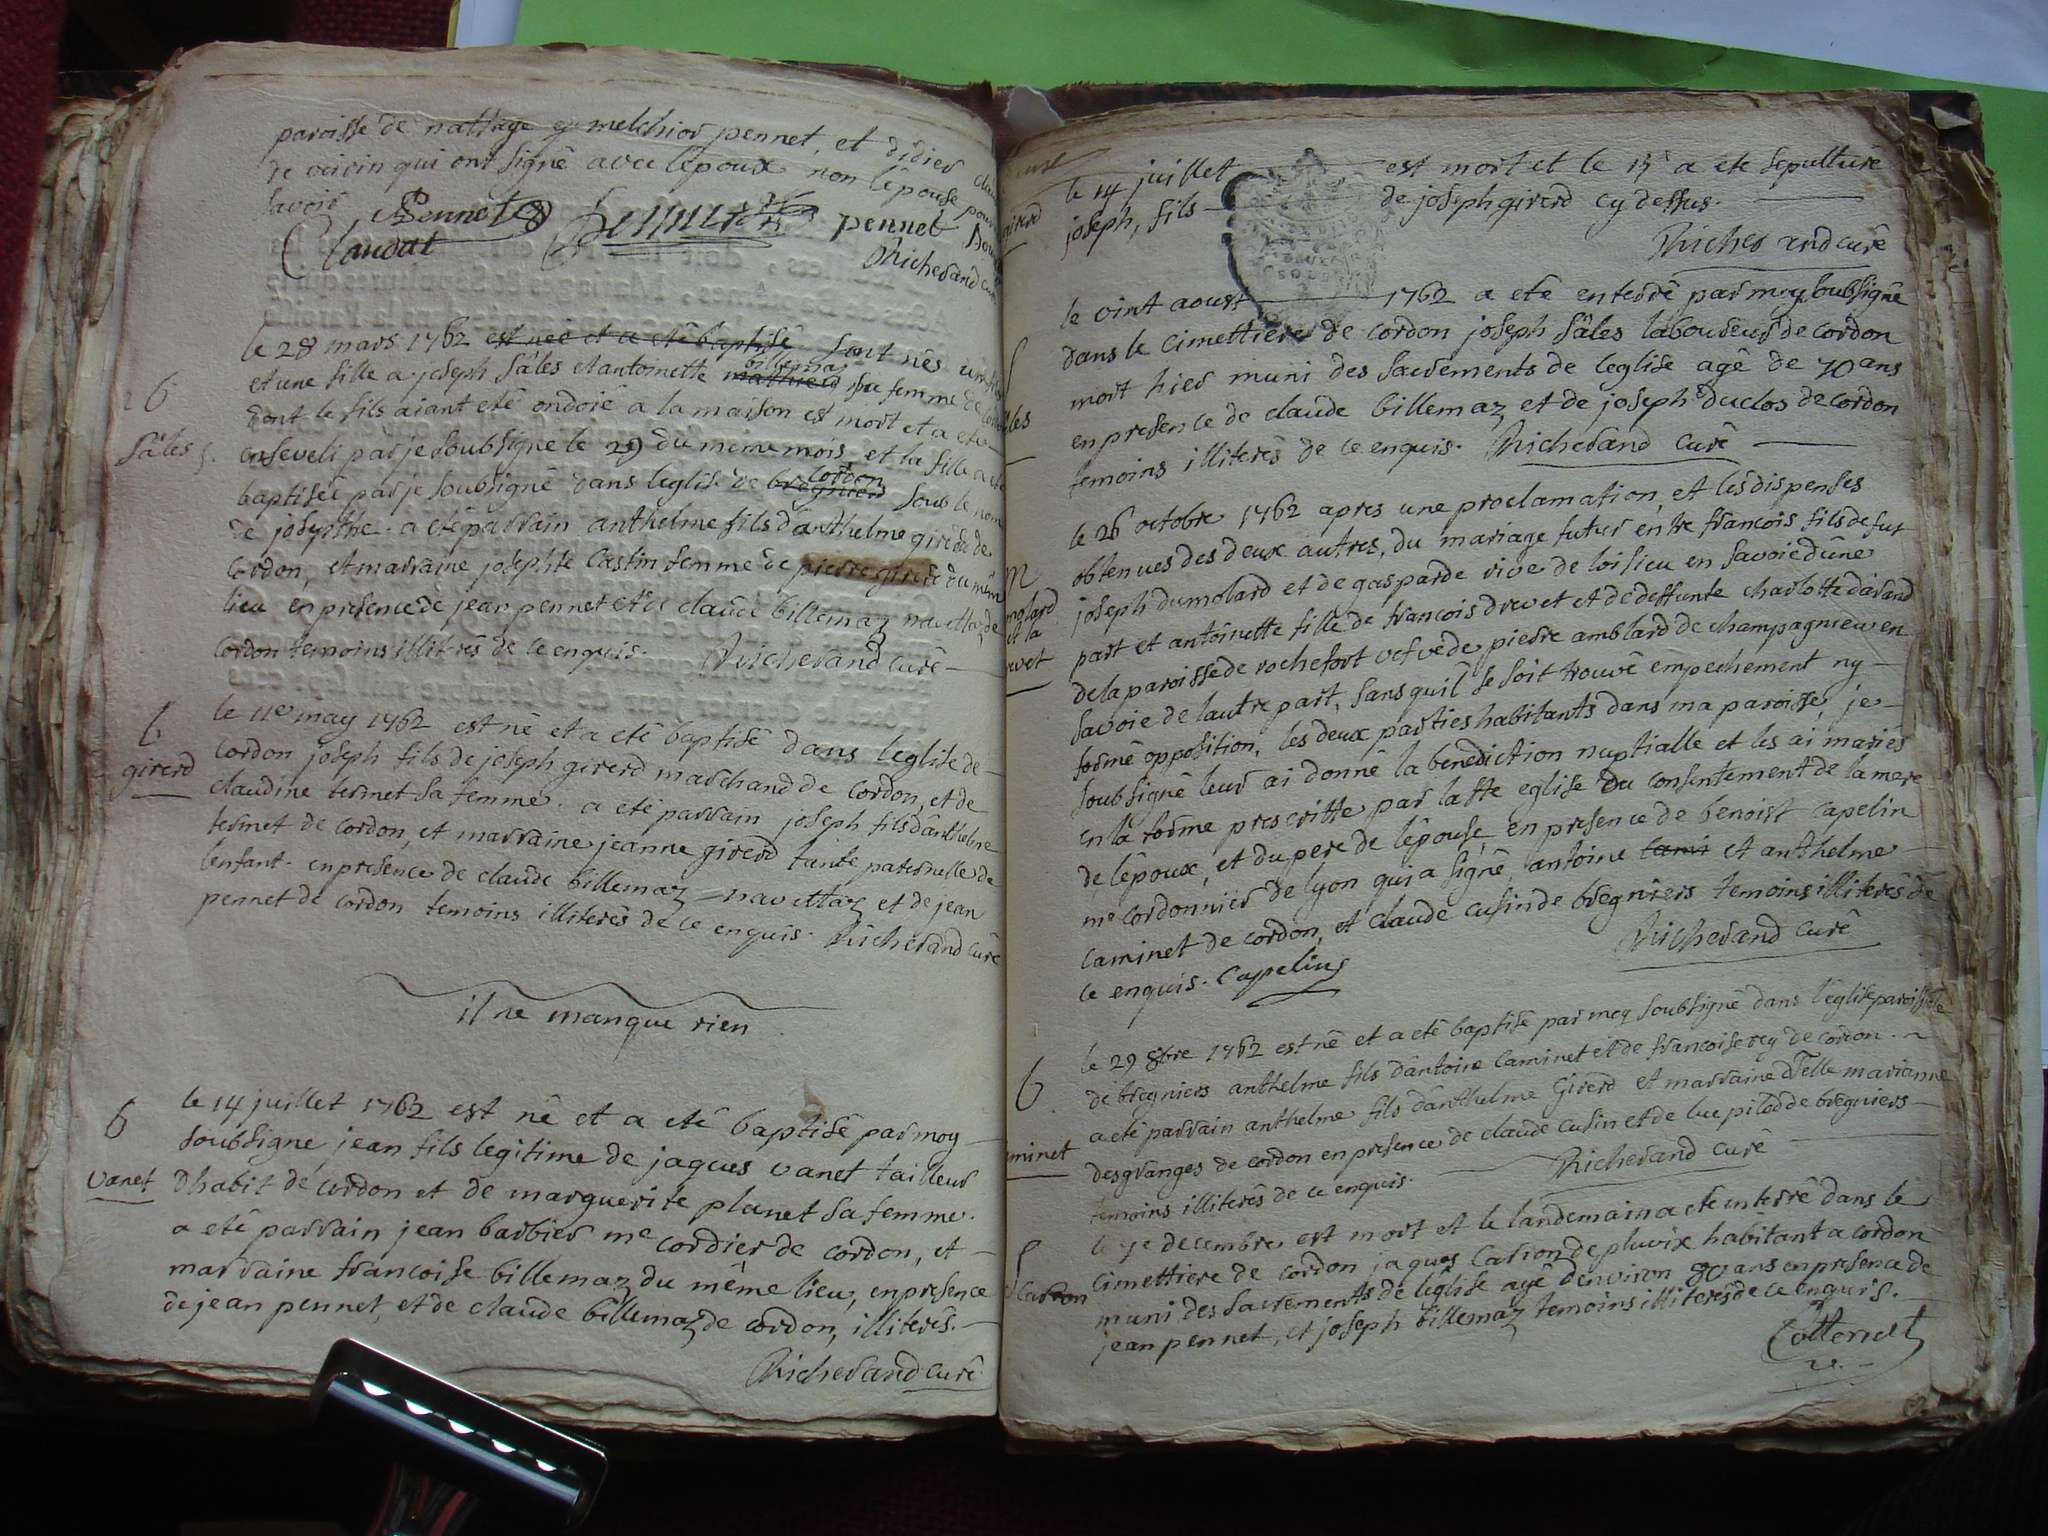 paroisse de nattage et melchior pennet, et didier
de voirin qui ont signé avec lepoux non lépouse pour
savoir Pennet pennet
Claudat Richerand curé
le 28 mars 1762 est nee et a eté baptisé sont nés un fils
et une fille a joseph Sâles et antoinette mathieu billemaz sa femme de
dont le fils aiant eté ondoié a la maison est mort et a eté
Sâles
enseveli par je soubsigné le 29 du meme mois et la fille a eté
baptisée par je soubsigné dans leglise de bregniers cordon sous le nom
de josephte. a eté parrain anthelme fils d'anthelme girerd de
cordon, et marraine josephte Castin femme de pierre girerd du mem
lieu en presence de jean pennet et de claude billemaz navettaz de
cordon temoins illiterés de ce enquis. Richerand curé
b
girerd
le 11e may 1762 est né et a eté baptisé dans leglise de
cordon joseph fils de joseph girerd marchand de cordon, et de
claudine termet sa femme. a eté parrain joseph fils d'anthelme
termet de cordon, et marraine jeanne girerd tante paternelle de
lenfant. en presence de claude billemaz navettaz et de jean
pennet de cordon temoins illiterés de ce enquis. Richerand curé
il ne manque rien
b
vanet
le 14 juillet 1762 est né et a eté baptisé par moy
soubsigné, jean fils legitime de jaques vanet tailleur
dhabit de cordon et de marguerite planet sa femme.
a eté parrain jean barbier me cordier de cordon, et
marraine francoise billemaz du même lieu, en presence
de jean pennet, et de claude billemaz de cordon, illiterés.
Richerand curé
le 14 juillet est mort et le 15 a eté sepulturé
joseph, fils de joseph girerd cy dessus.
Richerand curé
le vint aoust 1762 a eté enterré par moy soubsigné
dans le cimettiere de cordon joseph sâles laboureur de cordon
mort hier muni des sacrements de leglise agé de 70 ans
en presence de claude billemaz, et de joseph duclos de cordon
temoins illiterés de ce enquis. Richerand curé
m
le 26 octobre 1762 apres une proclamation, et les dispenses
obtenues des deux autres, du mariage futur entre francois fils de fut
joseph dumolard et de gasparde vive de loisieu en savoie d'une
part et antoinette fille de francois drevet et de deffunte charlotte darand
de la paroisse de rochefort vefve de pierre amblard de champagnieu en
savoie de lautre part, sans quil se soit trouvé empechement ny
formé opposition, les deux parties habitants dans ma paroisse, je
soubsigné leur ai donné la benediction nuptialle et les ai mariés
en la forme prescritte par la ste eglise du consentement de la mere
de lépoux, et du pere de lépouse, en presence de benoist capelin
me cordonnier de lyon qui a signé, antoine cami et anthelme
caminet de cordon, et claude cusin de bregniers temoins illiterés de
ce enquis. Capelins Richerand curé
b
le 29 8bre 1762 est né et a eté baptisé par moy soubsigné dans l'église paroissiale
de bregniers anthelme fils d'antoine caminet et de francoise rey de cordon.
a eté parrain anthelme fils d'anthelme Girerd et marraine dlle marianne
desgranges de cordon en presence de claude cusin et de luc pilod de bregniers
temoins illiterés de ce enquis. Richerand curé
le 7e decembre est mort et le landemain a eté interré dans le
cimettiere de cordon jaques Carron de pluvix habitant a cordon
muni des sacrements de leglise agé denviron 80 ans en presence de
jean pennet, et joseph billemaz temoins illiterés de ce enquis.
Cottenet